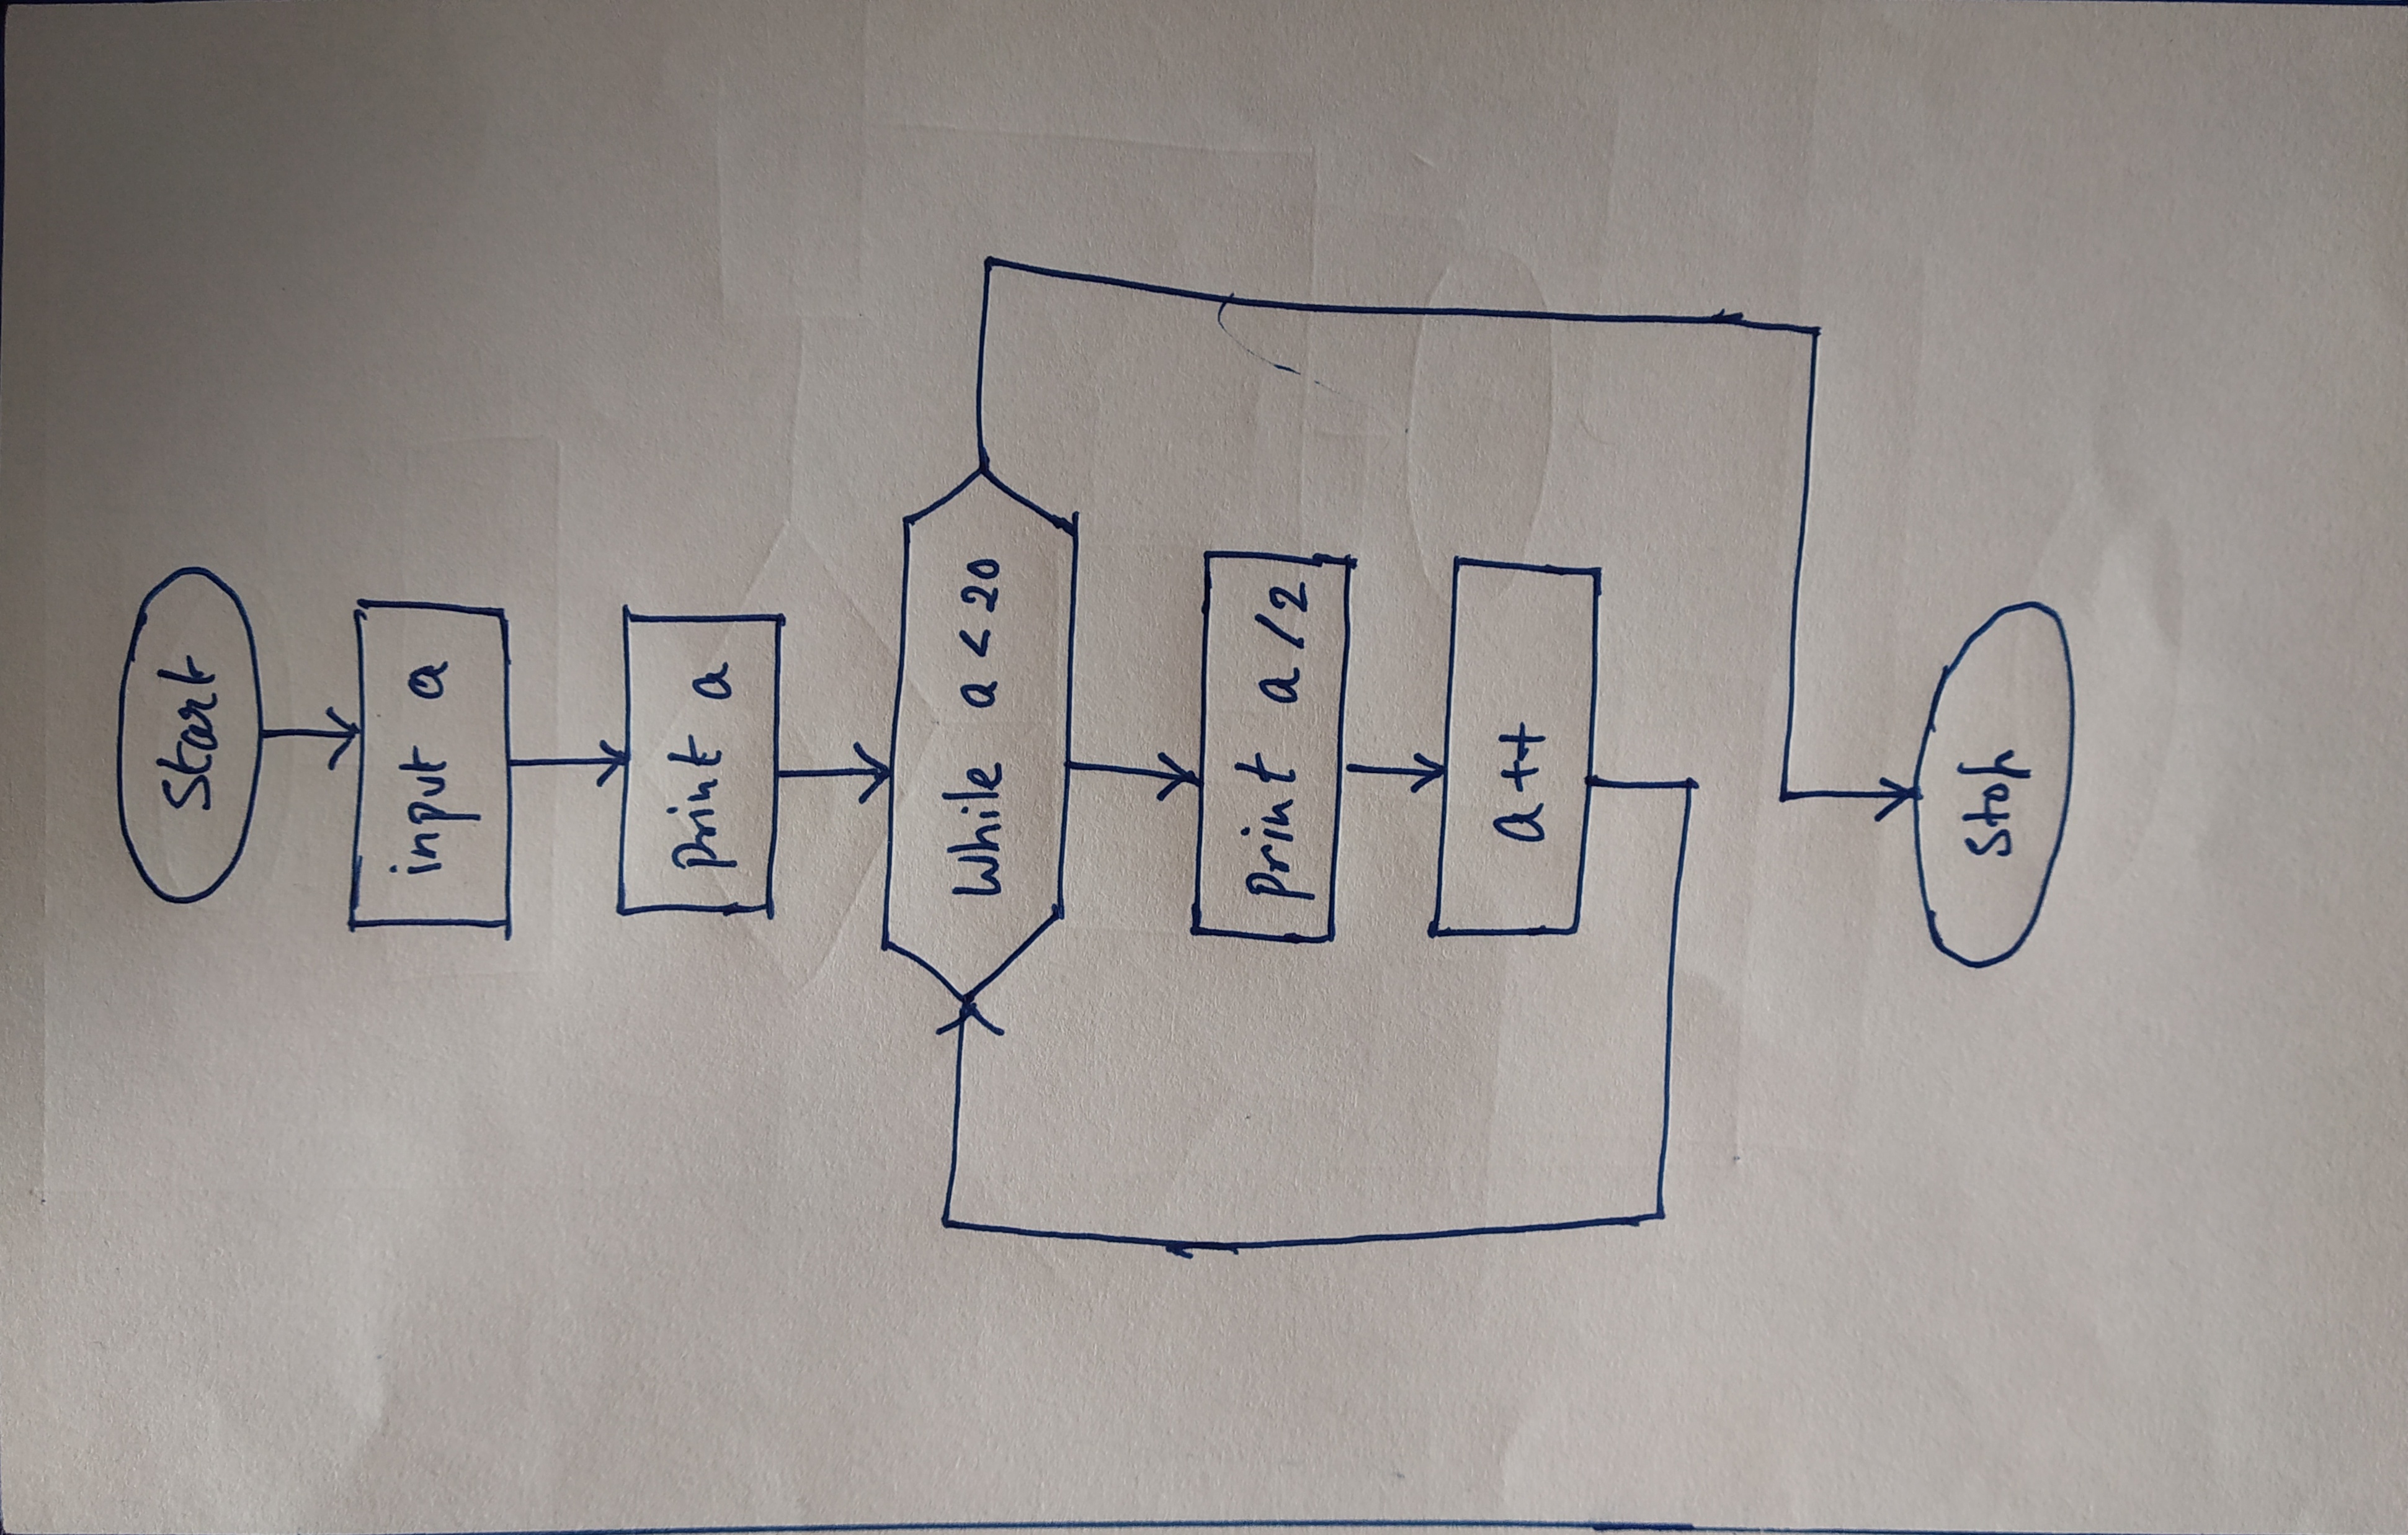 Start
input a
print a
While a < 20
print a / 2
a ++
Stop